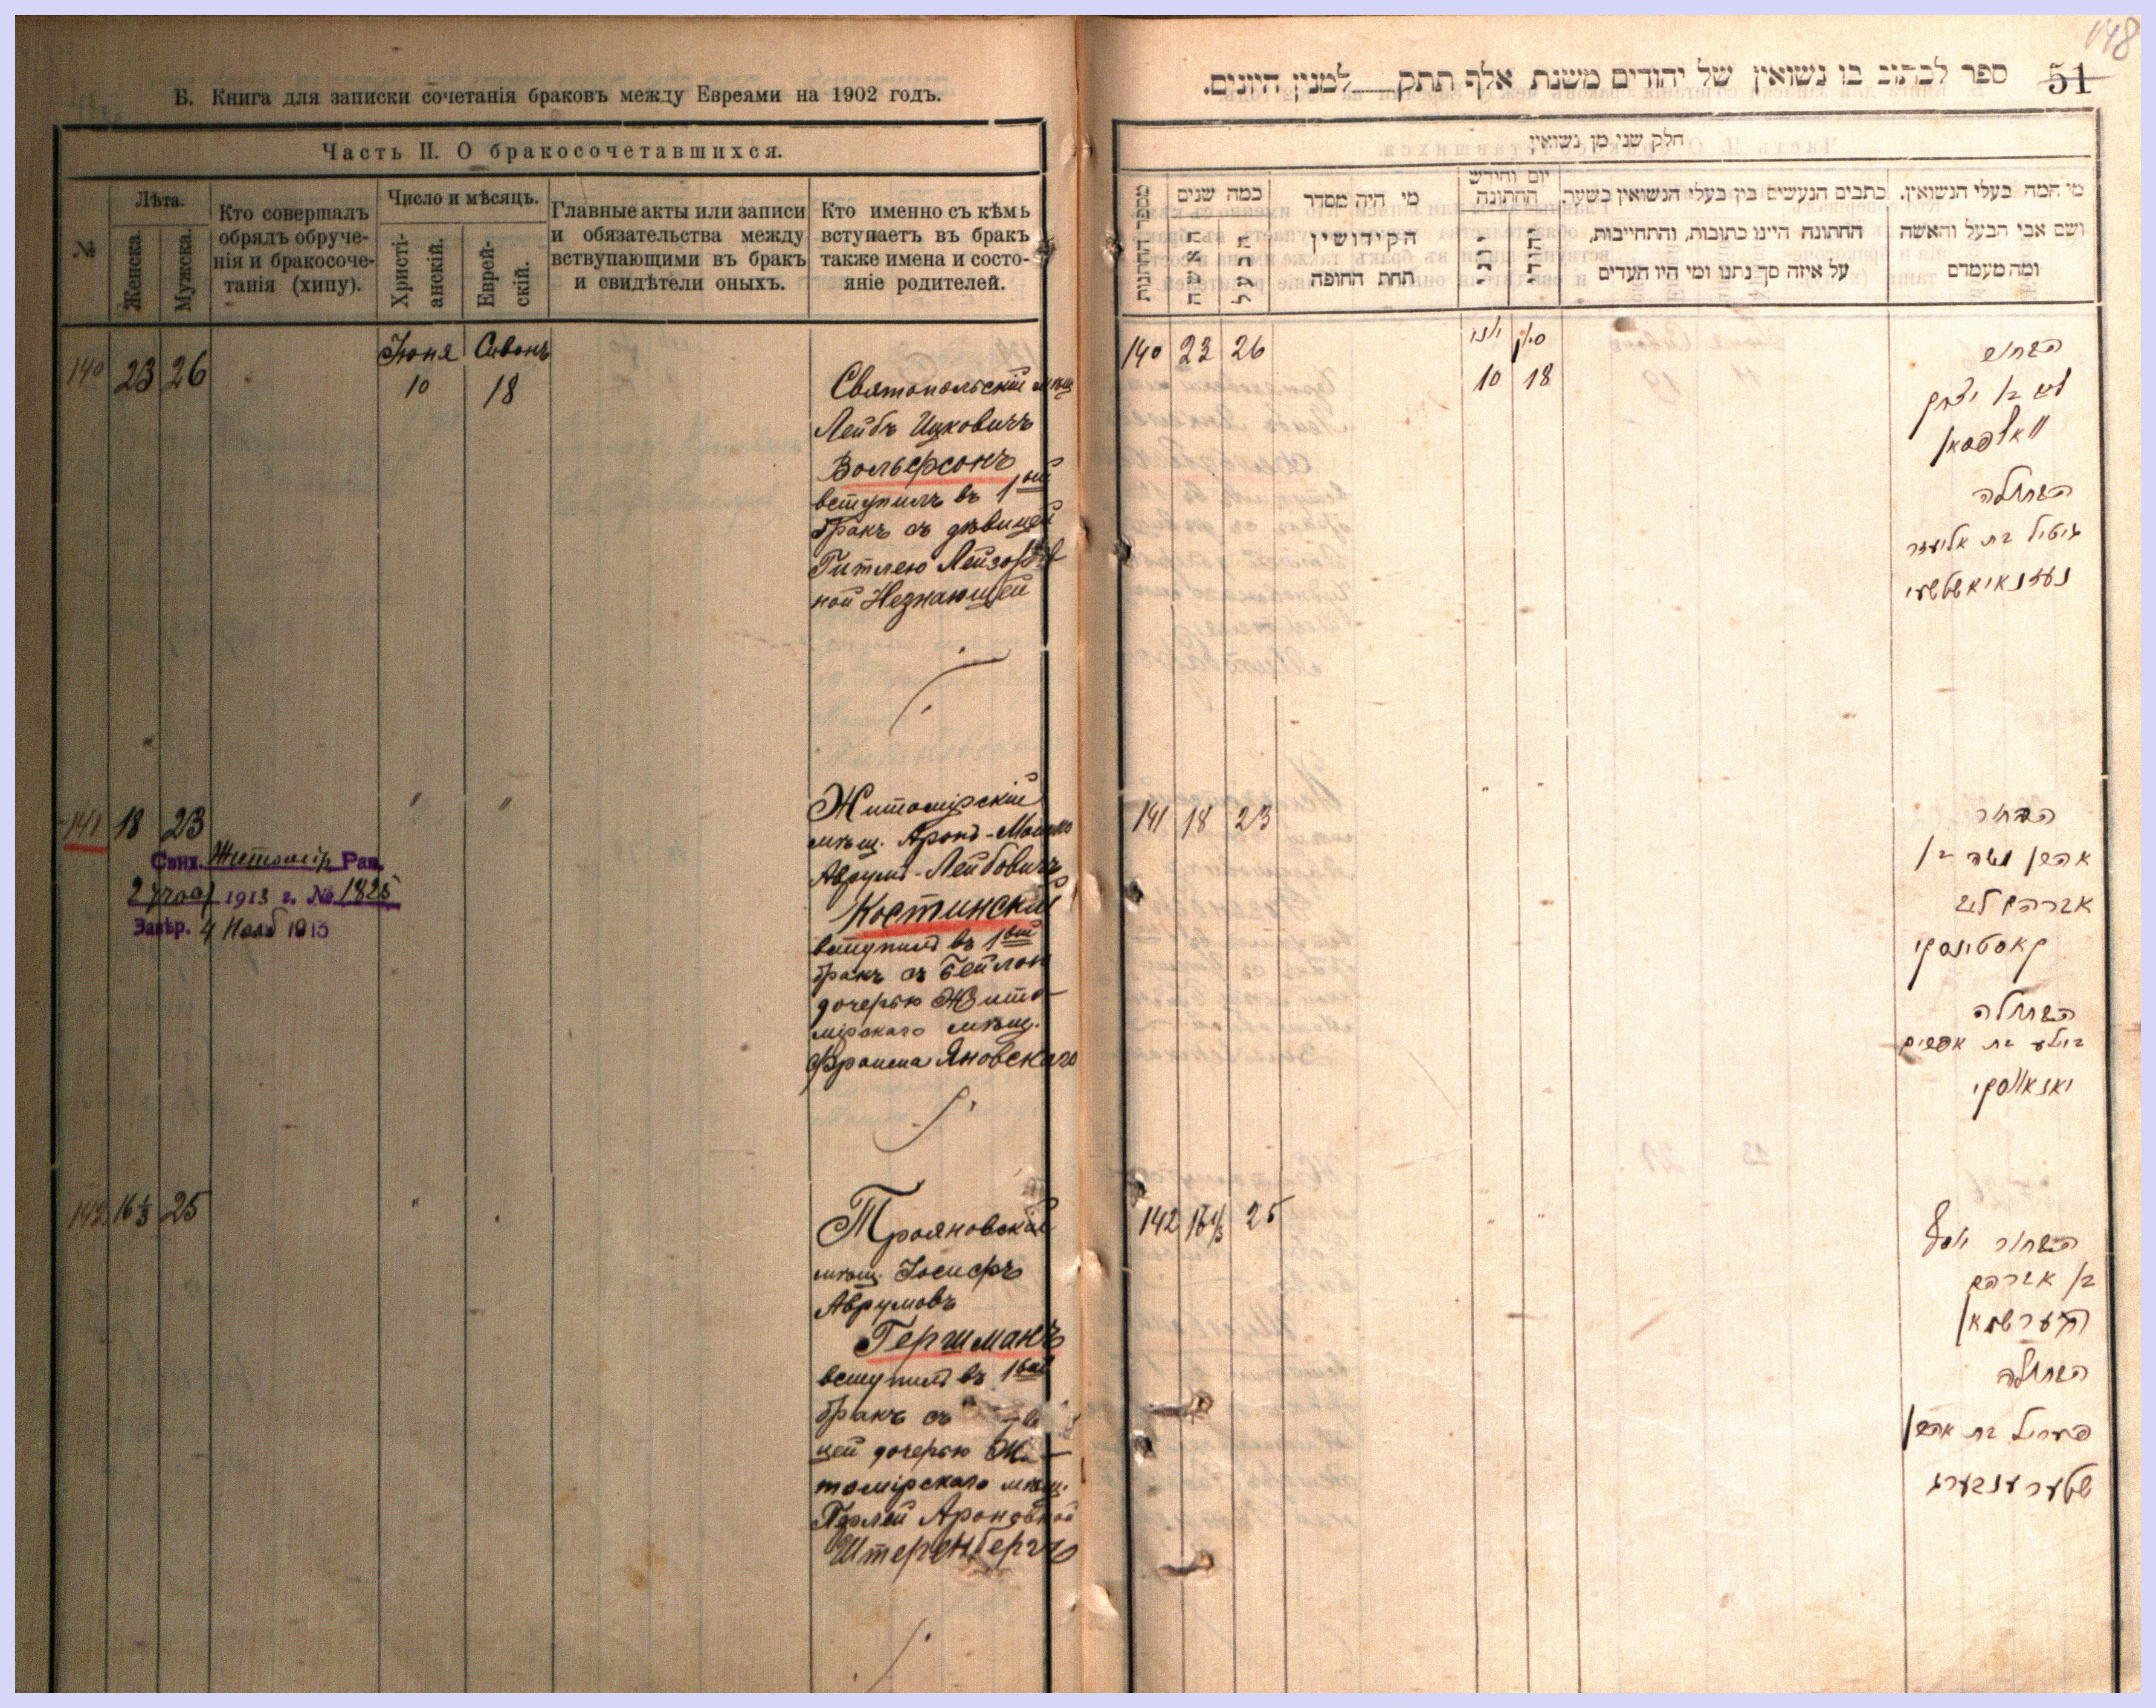 Б. Книга для записки сочетанія браковъ между Евреями на 1902 годъ.
Часть II. О бракосочетавшихся.
№
Лѣта.
Женска.
Мужска.
Кто совершалъ
обрядъ обруче-
нія и бракосоче-
танія (хипу).
Число и мѣсяцъ.
Христі-
анскій.
Еврей-
скій.
Главные акты или записи
и обязательства между
вствупающими въ бракъ
и свидѣтели оныхъ.
Кто именно съ кѣмъ
вступаетъ въ бракъ
также имена и состо-
яніе родителей.
140 23 26
Іюня Сивонъ
10 18
Святопольскій мѣщ
Лейбъ Ицковичъ
Вольфсонъ
вступилъ въ 1ый
бракъ съ дѣвицей
Гитлею Лейзоров
ной Незнающей
141 18 23 " "
Свид. Житомір. Рав.
1913 г. № 1825
Завѣр. 4 Нояб 1913
Житомірскій
мѣщ. Аронъ-Мошко
Аврумъ-Лейбовичъ
Костинскій
вступилъ въ 1ый
бракъ съ Бейлою
дочерью Жито-
мірскаго мѣщ.
Фроима Яновскаго
142 16 1/3 25 " "
Трояновскій
мѣщ. Іосифъ
Аврумовъ
Гершманъ
вступилъ въ 1ый
бракъ съ
цей дочерью Жи-
томірскаго мѣщ.
Перлей Ароновной
Штеренбергъ
148
51
ספר לכתוב בו נשואין של יהודים משנת אלף תתק למנין היונים.
חלק שני מן נשואין
מי המה בעלי הנשואין.
ושם אבי הבעל והאשה
ומה מעמדם
כתבים הנעשים בין בעלי הנשואין בשעת
החתונה היינו כתובות, והתחייבות,
על איזה סך נתנו ומי היו העדים
יום וחודש
החתונה
מי היה מסדר
הקידושין
תחת החופה
כמה שנים
האשה
הבעל
מספר החתונות
140 23 26
יוני סיון
10 18
הבחור
ליב בן יצחק
וואלפסאן
הבתולה
גיטיל בת אליעזר
נעזנאיאשטשעי
141 18 23 " "
הבחור
אהרן משה בן
אברהם ליב
קאסטינסקי
הבתולה
ביילע בת אפרים
יאנאווסקי
142 16 1/3 25 " "
הבחור יוסף
בן אברהם
הערשמאן
הבתולה
פעריל בת אהרן
שטערענבערג